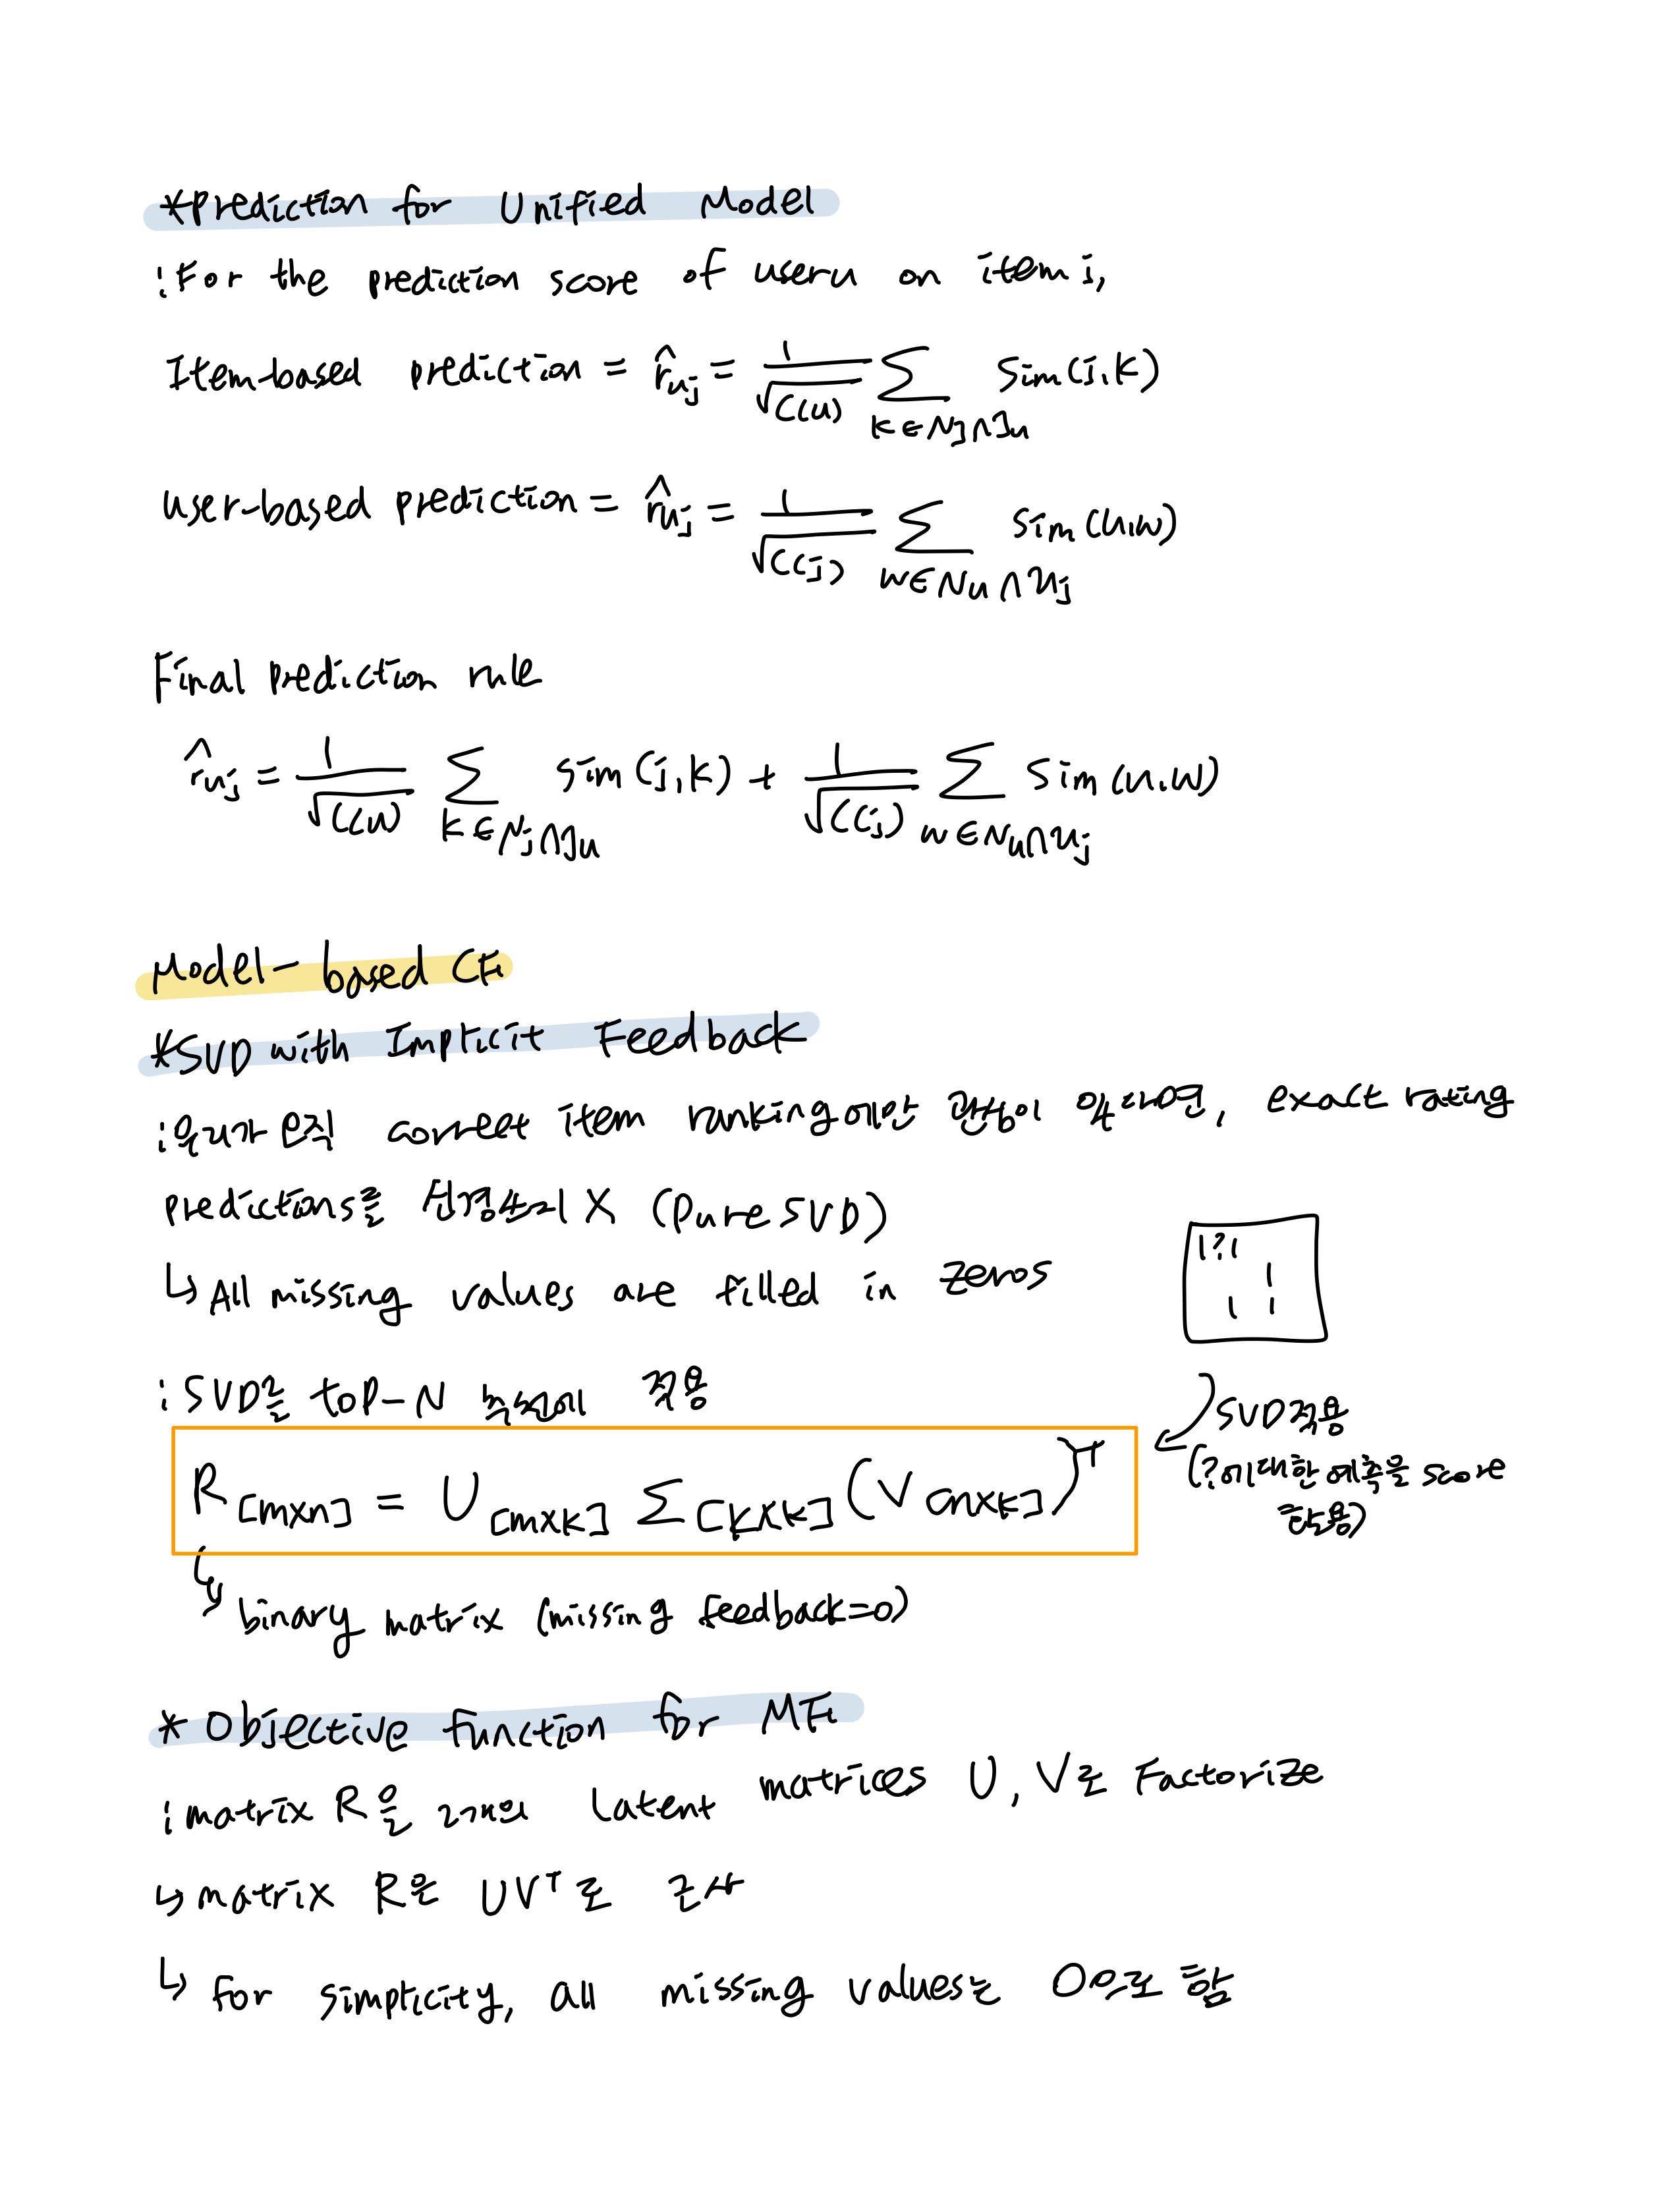 *Prediction for Unified Model
: For the prediction score of user u on item i,
Item-based prediction = r̂_uj = 1/√C(u) Σ_{k∈N_j∩I_u} sim(j,k)
user-based prediction = r̂_uj = 1/√C(j) Σ_{w∈N_u∩U_j} sim(u,w)
Final prediction rule
r̂_uj = 1/√C(u) Σ_{k∈N_j∩I_u} sim(j,k) + 1/√C(j) Σ_{w∈N_u∩U_j} sim(u,w)
Model-based CF
*SVD with Implicit Feedback
: 우리가 오직 correct item ranking에만 관심이 있다면, exact rating
predictions를 신경쓰지 X (Pure SVD)
↳ All missing values are filled in zeros
1 ? 1
1
1 1
: SVD를 top-N 추천에 적용
SVD적용
(?에 대한 예측을 score
R[m×n] = U[m×k] Σ[k×k] (V[n×k])^T
활용)
↳ binary matrix (missing feedback=0)
* Objective function for MF
: matrix R을 2개의 latent matrices U, V로 Factorize
↳ matrix R은 UV^T로 근사
↳ for simplicity, all missing values는 0으로 함